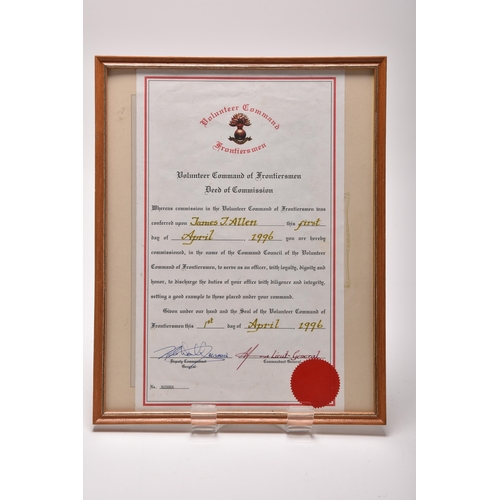 Volunteer Command
Frontiersmen
Volunteer Command of Frontiersmen
Deed of Commission
Whereas commission in the Volunteer Command of Frontiersmen was
conferred upon James J. Allen this first
day of April 1996 you are hereby
commissioned, in the name of the Command Council of the Volunteer
Command of Frontiersmen, to serve as an officer, with loyalty, dignity and
honor, to discharge the duties of your office with diligence and integrity,
setting a good example to those placed under your command.
Given under our hand and the Seal of the Volunteer Command of
Frontiersmen this 1st day of April 1996
Lieut-General
Deputy Commandant
Commandant General
No.